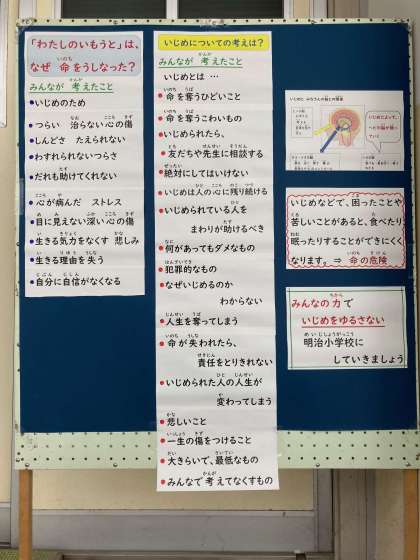 「わたしのいもうと」は、
なぜ 命をうしなった？
みんなが 考えたこと
●いじめのため
●つらい 治らない心の傷
●しんどさ たえられない
●わすれられないつらさ
●だれも助けてくれない
●心が病んだ ストレス
●目に見えない深い心の傷
●生きる気力をなくす 悲しみ
●生きる理由を失う
●自分に自信がなくなる
いじめについての考えは？
みんなが 考えたこと
いじめとは …
●命を奪うひどいこと
●命を奪うこわいもの
●いじめられたら、
友だちや先生に相談する
●絶対にしてはいけない
●いじめは人の心に残り続ける
●いじめられている人を
まわりが助けるべき
●何があってもダメなもの
●犯罪的なもの
●なぜいじめるのか
わからない
●人生を奪ってしまう
●命が失われたら、
責任をとりきれない
●いじめられた人の人生が
変わってしまう
●悲しいこと
●一生の傷をつけること
●大きらいで、最低なもの
●みんなで考えてなくすもの
いじめなどで、困ったことや
苦しいことがあると、食べたり
眠ったりすることができにくく
なります。 ⇒ 命の危険
みんなの力で
いじめをゆるさない
明治小学校に
していきましょう